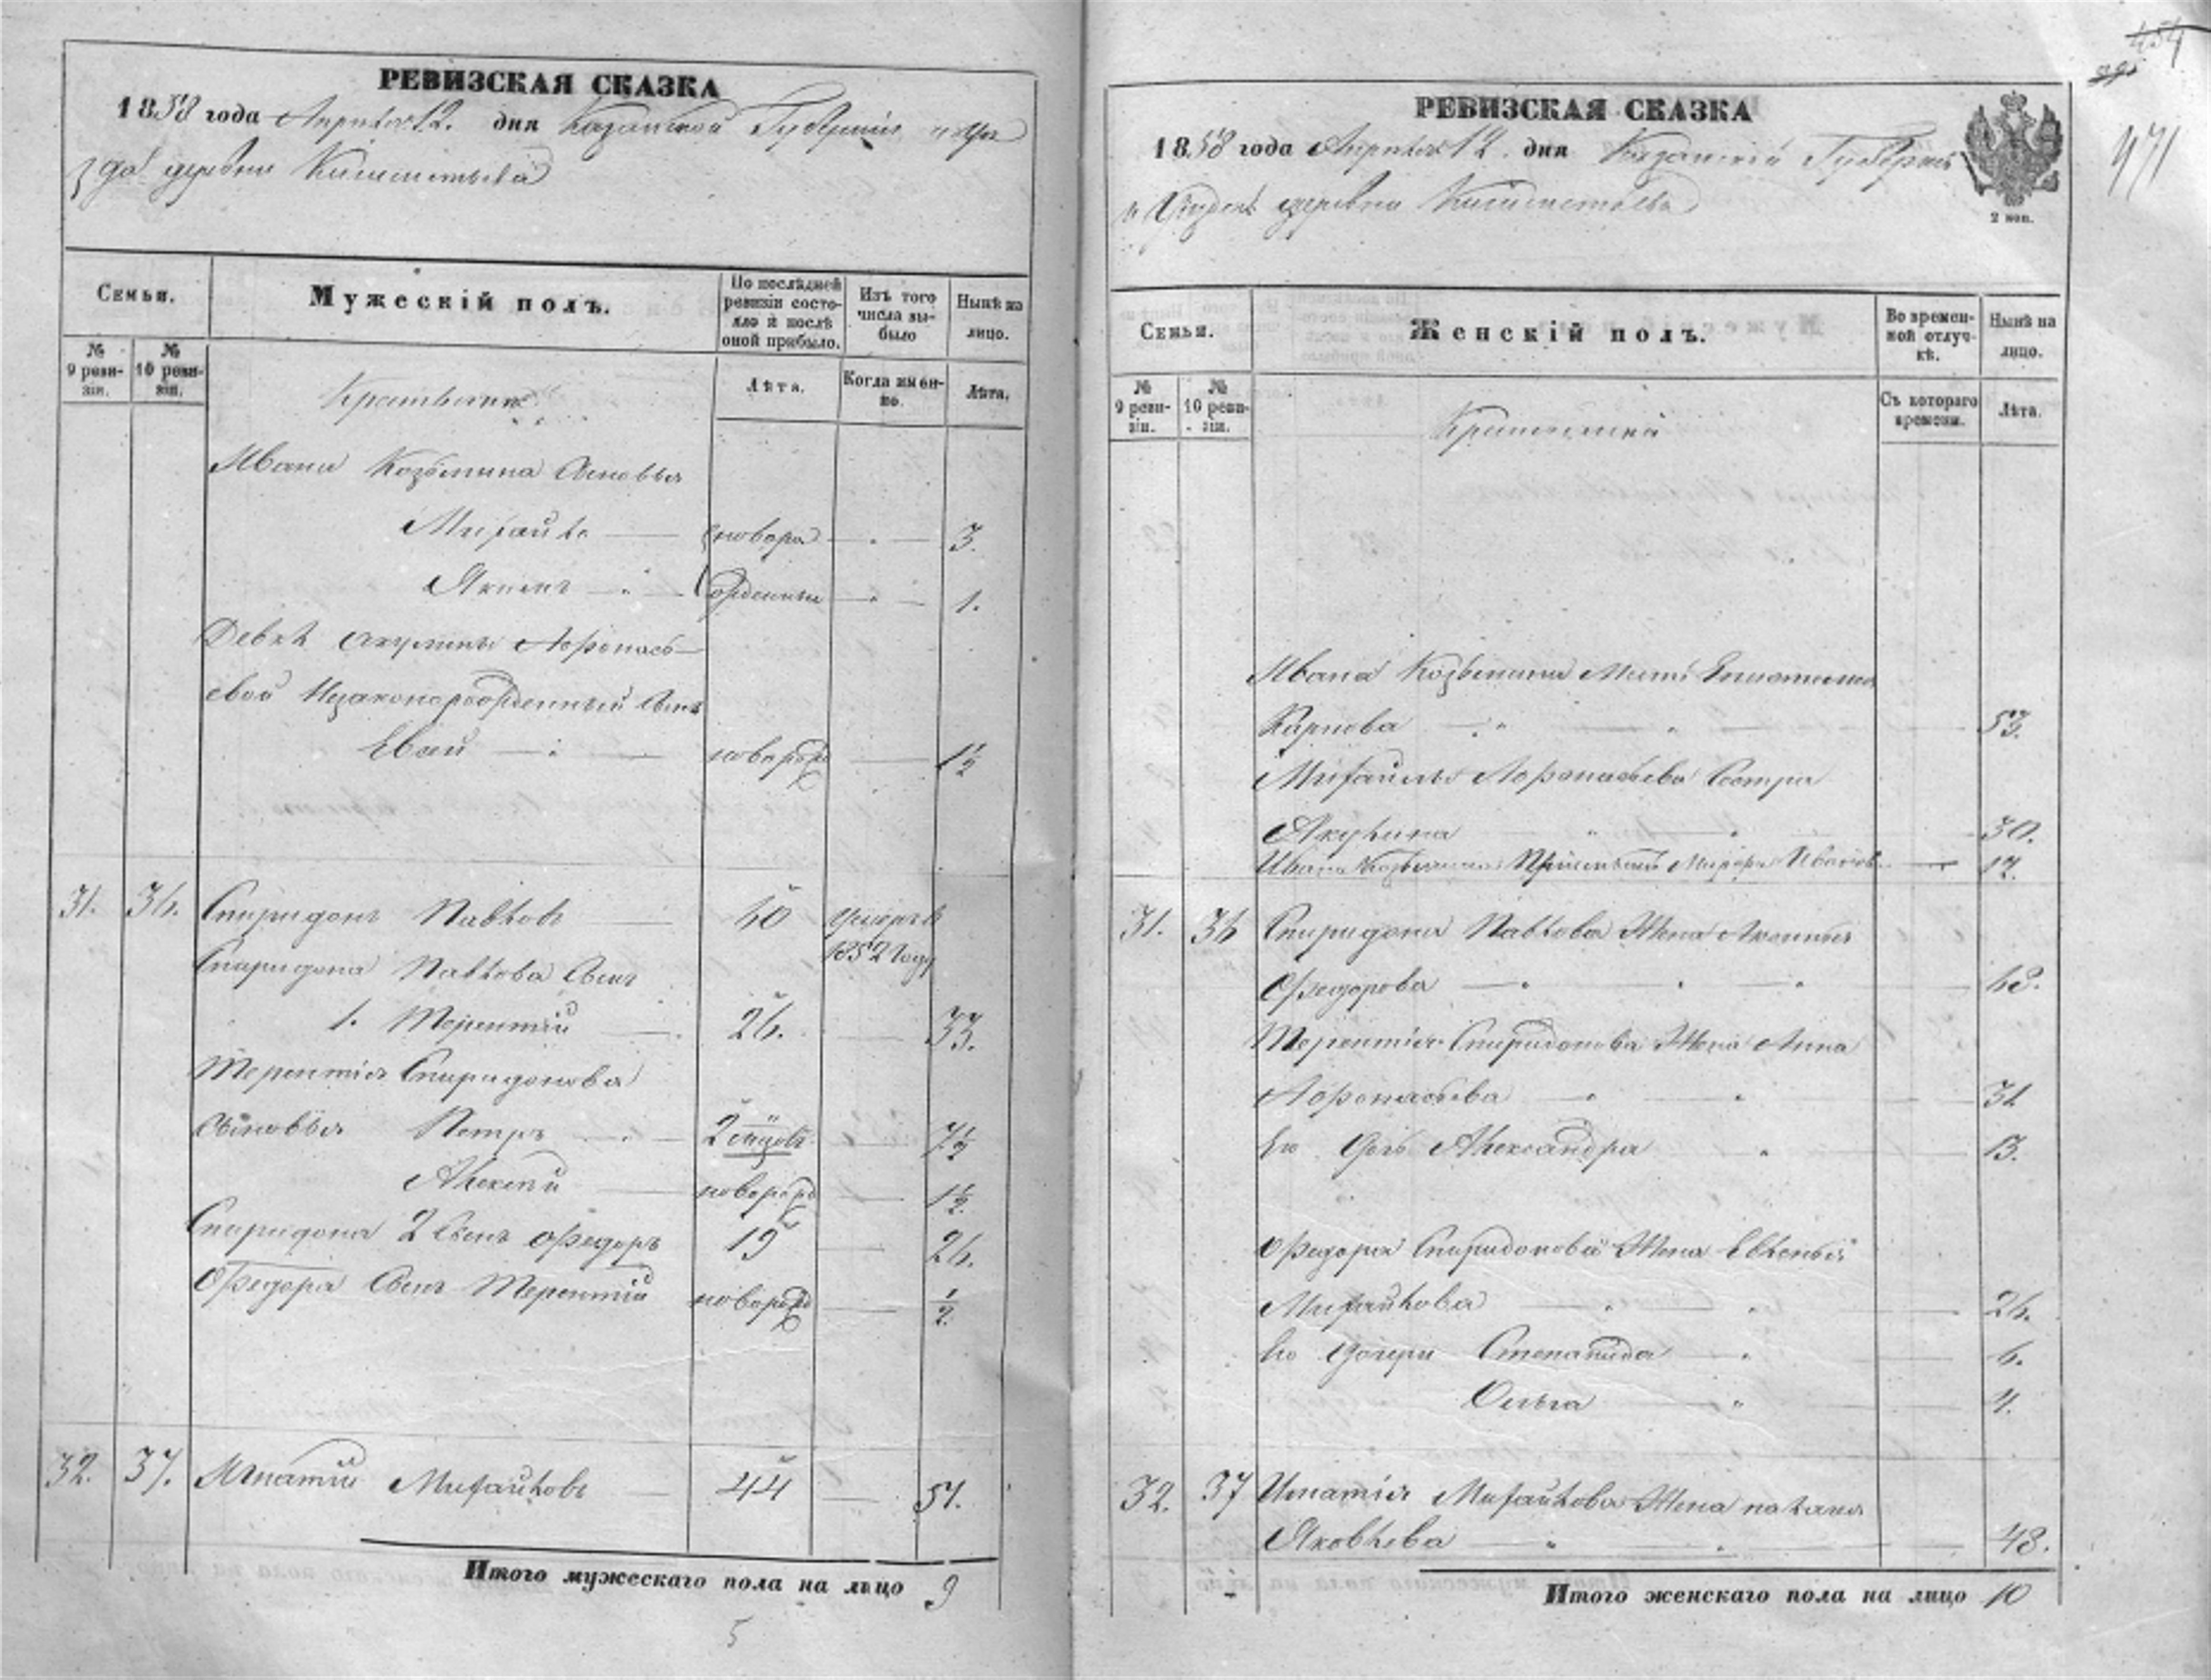 РЕВИЗСКАЯ СКАЗКА
1858 года Апреля 12. дня Казанской Губернии и уѣ
зда деревни
Семьи.
Мужескій полъ.
По послѣдней ревизіи состояло и послѣ оной прибыло.
Изъ того числа выбыло
Нынѣ на лицо.
№ 9 ревизіи.
№ 10 ревизіи.
Лѣта.
Когда именно.
Лѣта.
Крестьяне
Ивана Козьмина Сыновья
Михайла новоро 3.
Якимъ жденны 1.
Девкѣ Акулины Афонась
евой Незаконорожденный Сынъ
новорожд 1½
31. 36. Спиридонъ Павловъ 40 Умеръ въ
1852 году
Спиридона Павлова Сынъ
1. Терентій 26. 33.
Терентія Спиридонова
Сыновья Петръ 2 мѣсцовъ 7½
Алексѣй новорожд 1½
Спиридона 2 Сынъ Федоръ 19 26.
Федора Сынъ Терентій новорожд ½
32. 37. Игнатій Михайловъ 44 51.
Итого мужескаго пола на лицо 9
5
454
471
РЕВИЗСКАЯ СКАЗКА
1858 года Апреля 12. дня Казанской Губерніи
и Уѣзда деревни
2 коп.
Семьи.
Женскій полъ.
Во временной отлучкѣ.
Нынѣ на лицо.
№ 9 ревизіи.
№ 10 ревизіи.
Съ котораго времени.
Лѣта.
Крестьяне
Ивана Козьмина Мать
Карпова 53.
Михайлы Афонасьева Сестра
Акулина 30.
Ивана Козьмина 17.
31. 36 Спиридона Павлова Жена Аксинья
Федорова
Терентія Спиридонова Жена Анна
Афонасьева 31
Его дочь Александра 13.
Федора Спиридонова Жена Евгенья
Михайлова 26.
Его дочери Степанида 6.
Ольга 4.
32. 37 Игнатія Михайлова Жена Палагея
Яковлева 48.
Итого женскаго пола на лицо 10